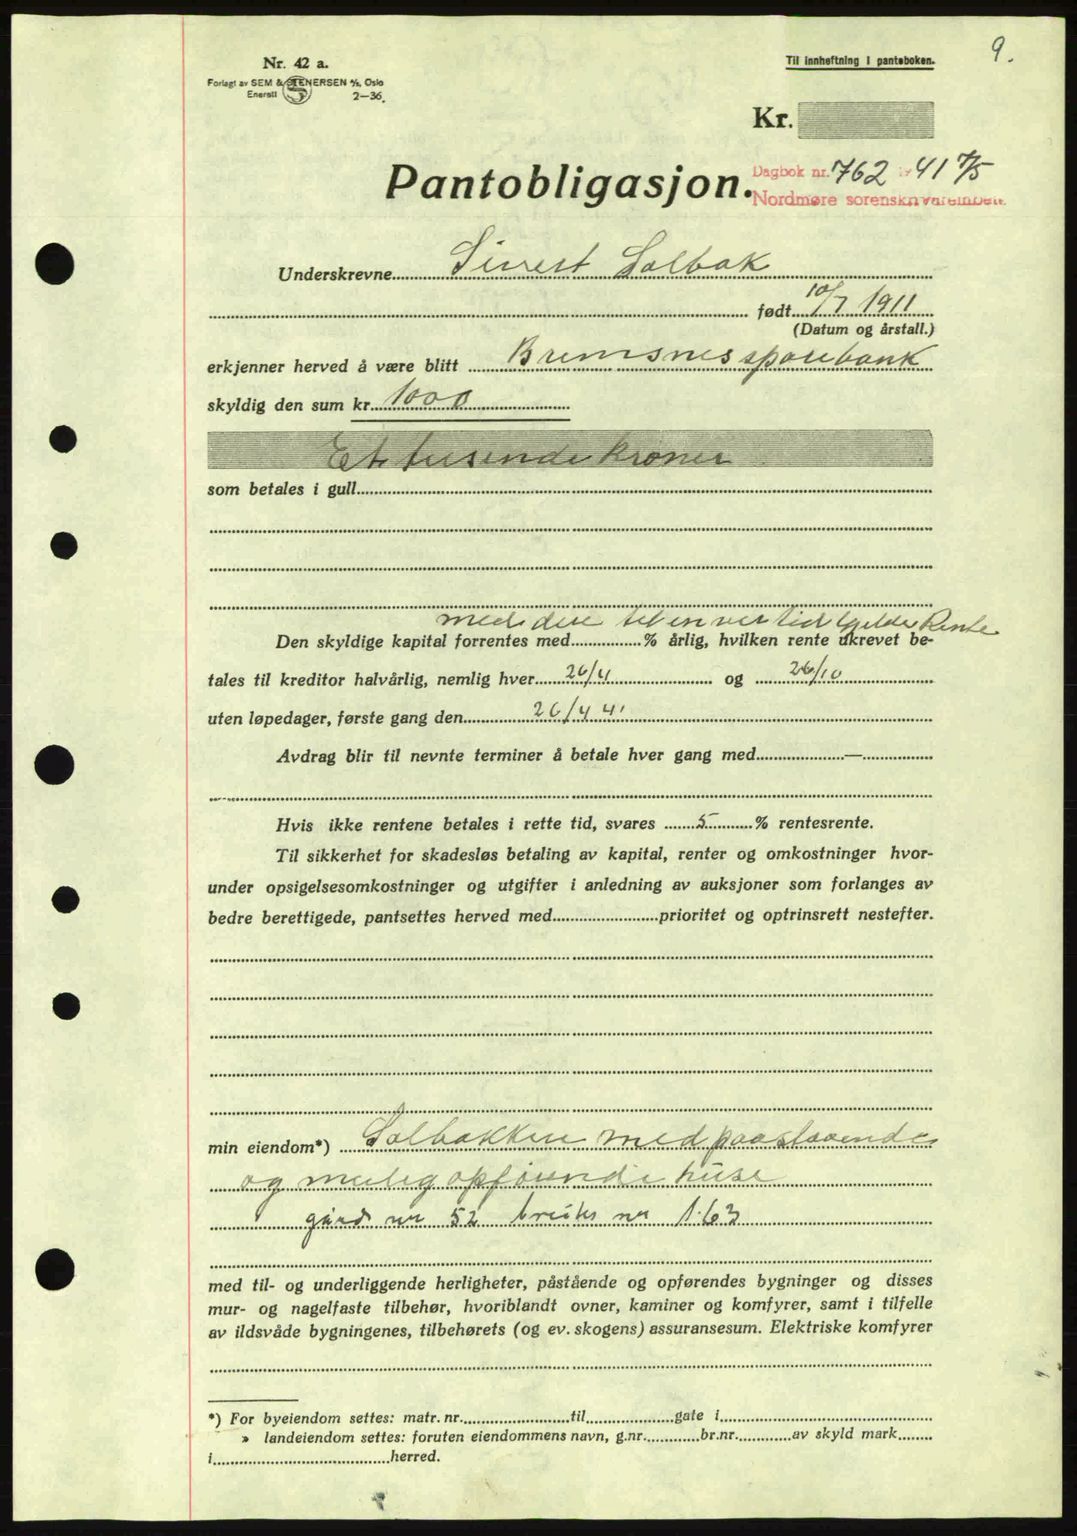 9.
Nr. 42 a.
Til innheftning i panteboken.
Forlagt av SEM & STENERSEN A/S, Oslo
Enerett 2—36.
Kr.
Pantobligasjon.
Dagbok nr. 762 1941 7/5
Nordmøre sorenskriverembete.
Underskrevne Sivert Solbak
født 10/7 1911
(Datum og årstall.)
erkjenner herved å være blitt Bremsnes sparebank
skyldig den sum kr. 1000
Et tusende kroner
som betales i gull
med den til en ver tid gjelde Rente
Den skyldige kapital forrentes med % årlig, hvilken rente ukrevet be-
tales til kreditor halvårlig, nemlig hver 26/4 og 26/10
uten løpedager, første gang den 26/4 41
Avdrag blir til nevnte terminer å betale hver gang med —
Hvis ikke rentene betales i rette tid, svares 5 % rentesrente.
Til sikkerhet for skadesløs betaling av kapital, renter og omkostninger hvor-
under opsigelsesomkostninger og utgifter i anledning av auksjoner som forlanges av
bedre berettigede, pantsettes herved med prioritet og optrinsrett nestefter.
min eiendom*) Solbakken med paastaaende
og mulig opførende huse
gård nr 52 bruks nr 163
med til- og underliggende herligheter, påstående og opførendes bygninger og disses
mur- og nagelfaste tilbehør, hvoriblandt ovner, kaminer og komfyrer, samt i tilfelle
av ildsvåde bygningenes, tilbehørets (og ev. skogens) assuransesum. Elektriske komfyrer
*) For byeiendom settes: matr. nr. til gate i
» landeiendom settes: foruten eiendommens navn, g.nr. br.nr. av skyld mark
i herred.